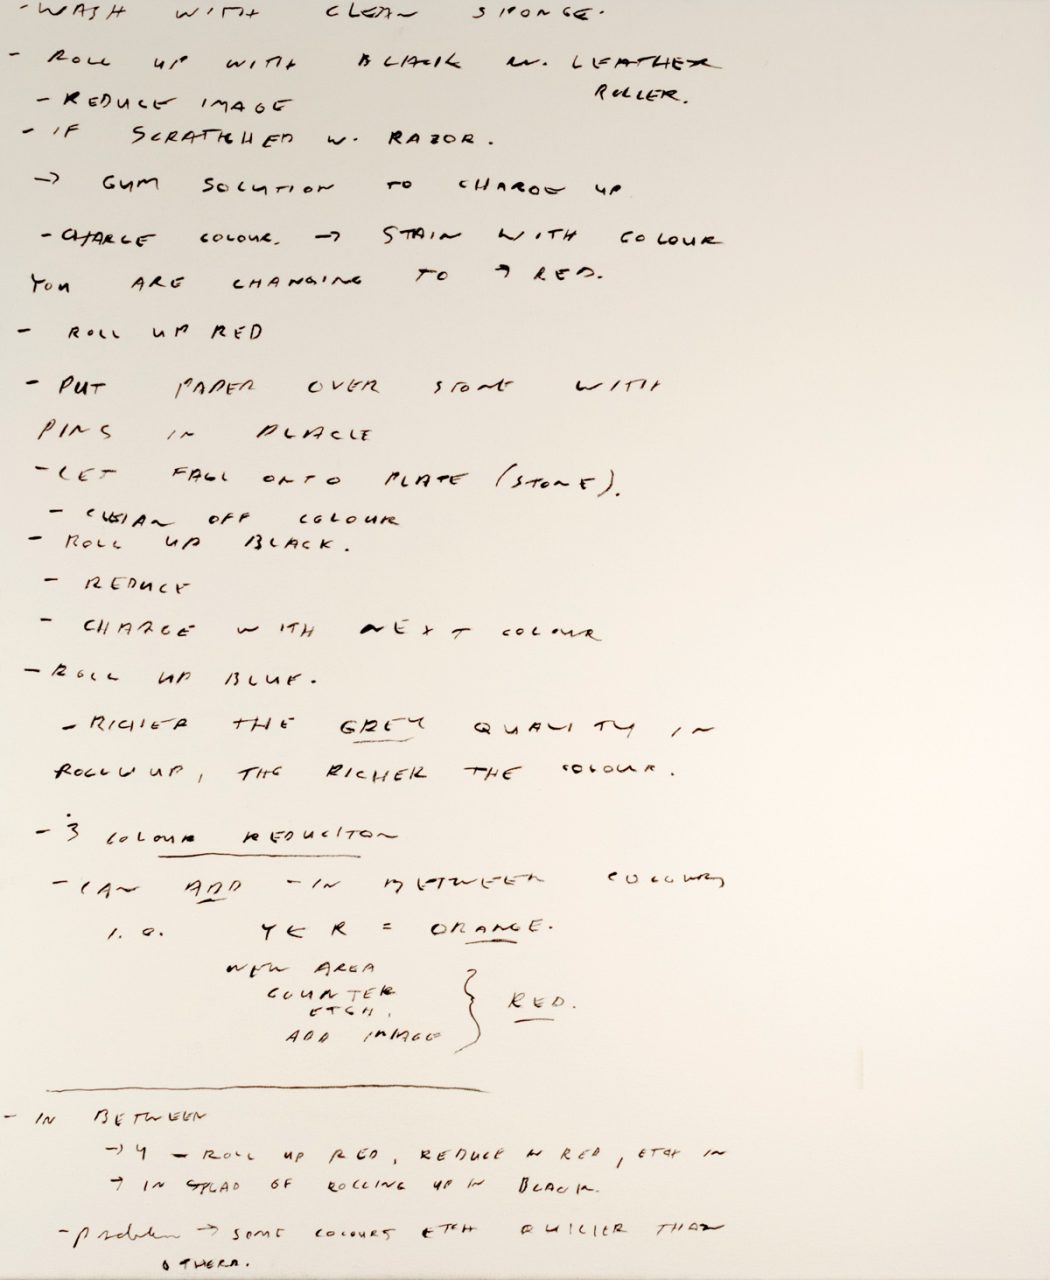 - WASH WITH CLEAN SPONGE.
- ROLL UP WITH BLACK W. LEATHER
ROLLER.
- REDUCE IMAGE
- IF SCRATCHED W. RAZOR.
→ GUM SOLUTION TO CHARGE UP
- CHARGE COLOUR. → STAIN WITH COLOUR
YOU ARE CHANGING TO → RED.
- ROLL UP RED
- PUT PAPER OVER STONE WITH
PINS IN PLACLE
- LET FALL ONTO PLATE (STONE).
- CLEAN OFF COLOUR
- ROLL UP BLACK.
- REDUCE
- CHARGE WITH NEXT COLOUR
- ROLL UP BLUE.
- RICHER THE GREY QUALITY IN
ROLL UP, THE RICHER THE COLOUR.
- 3 COLOUR REDUCITON
- CAN ADD - IN BETWEEN COLOURS
I.E. Y & R = ORANGE.
NEW AREA
COUNTER
ETCH.
ADD IMAGE
} RED.
- IN BETWEEN
→ 4 - ROLL UP RED, REDUCE IN RED, ETCH IN
→ IN OF ROLLING UP IN BLACK.
- problem → SOME COLOURS ETCH QUICIER THAN
OTHERS.